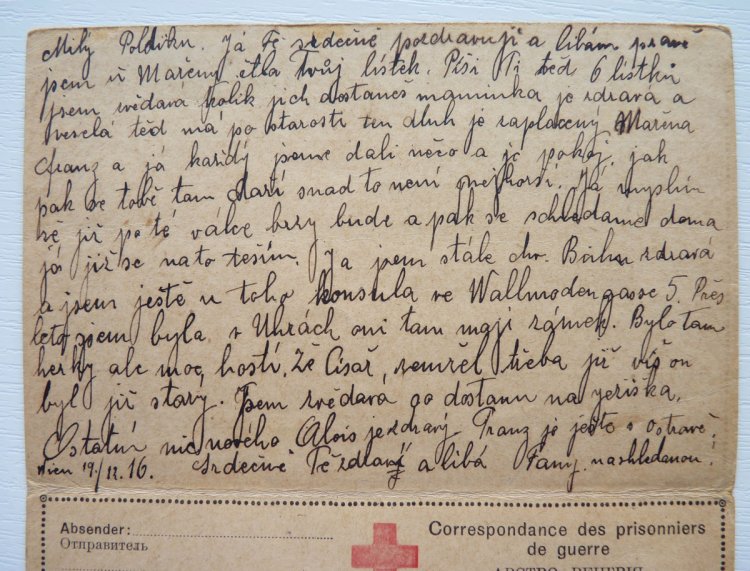 Milý Poldíku. Já Tě srdečně pozdravuji a líbám právě
jsem u Mařeny četla Tvůj lístek. Píši Ti teď 6 lístků
jsem zvědavá kolik jich dostaneš maminka je zdravá a
veselá teď má po starosti ten dluh je zaplacený Mařena
Franz a já každý jsme dali něco a je pokoj. jak
pak se tobě tam daří snad to není nejhorší. Já myslím
že již po té válce brzy bude a pak se shledáme doma
já již se na to těším. Ja jsem stále chv. Bohu zdravá
a jsem ještě u toho konsula ve Wallmodengasse 5. Přes
leto jsem byla v Uhrách oni tam mají zámek. Bylo tam
hezky ale moc hostí. Že Císař, zemřel třeba již víš on
byl již starý. Jsem zvědavá co dostanu na Ježíška.
Ostatní nic nového Alois je zdravý Franz je ještě v Ostravě.
Wien 19./12.16. Srdečně Tě zdraví a líbá Fany. nashledanou!
Absender:
Отправитель
Correspondance des prisonniers
de guerre
АВСТРО-ВЕНГРІЯ